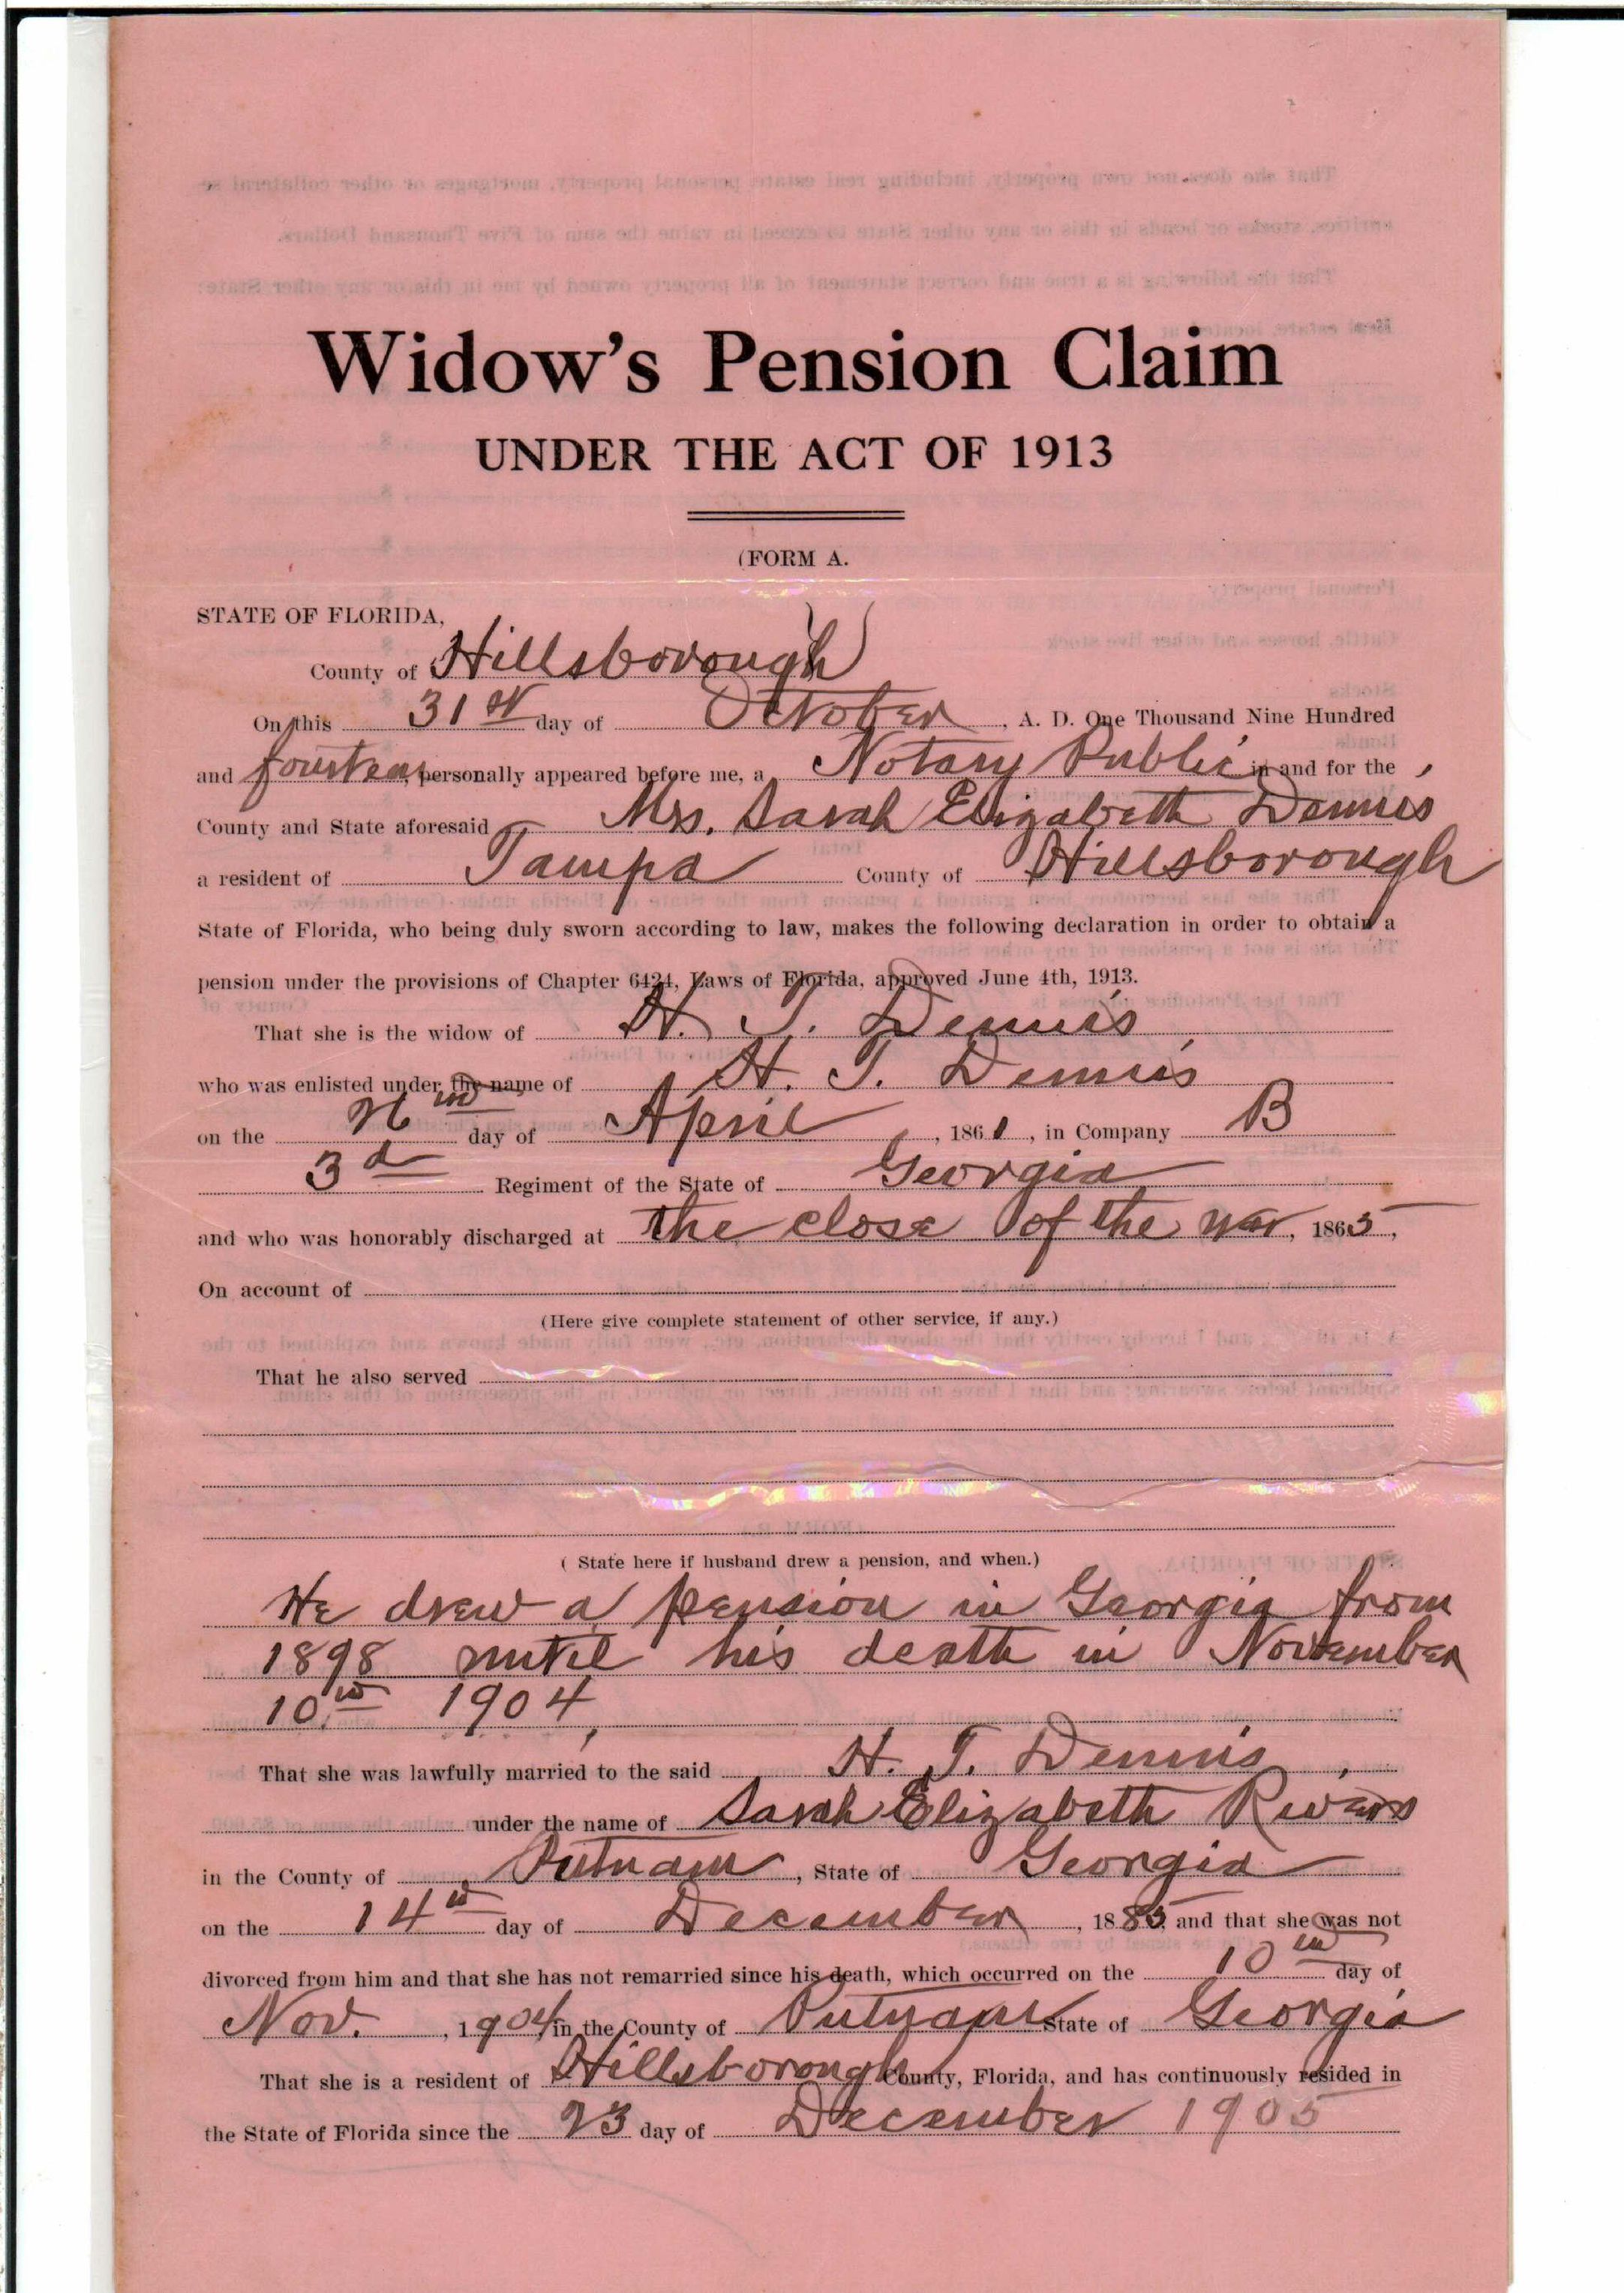 Widow's Pension Claim
UNDER THE ACT OF 1913
(FORM A.
STATE OF FLORIDA,
County of Hillsborough
On this 31st day of October, A. D. One Thousand Nine Hundred
and fourteen, personally appeared before me, a Notary Public in and for the
County and State aforesaid Mrs. Sarah Elizabeth Dennis
a resident of Tampa County of Hillsborough
State of Florida, who being duly sworn according to law, makes the following declaration in order to obtain a
pension under the provisions of Chapter 6424, Laws of Florida, approved June 4th, 1913.
That she is the widow of H. T. Dennis
who was enlisted under the name of H. T. Dennis
on the 26th day of April, 1861, in Company B
3d Regiment of the State of Georgia
and who was honorably discharged at the close of the war, 1865,
On account of
(Here give complete statement of other service, if any.)
That he also served
( State here if husband drew a pension, and when.)
He drew a pension in Georgia from
1898 until his death in November
10th 1904,
That she was lawfully married to the said H. T. Dennis,
under the name of Sarah Elizabeth Rivers
in the County of Putnam, State of Georgia
on the 14th day of December, 1885, and that she was not
divorced from him and that she has not remarried since his death, which occurred on the 10th day of
Nov., 1904 in the County of Putnam State of Georgia
That she is a resident of Hillsborough County, Florida, and has continuously resided in
the State of Florida since the 23 day of December 1905